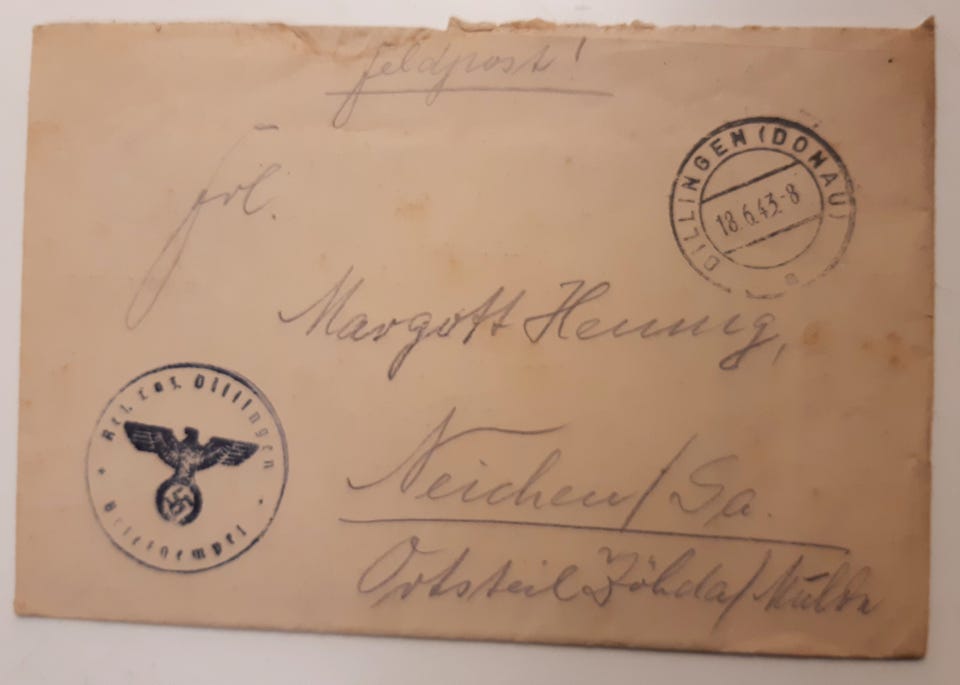 Feldpost!
DILLINGEN (DONAU)
18.6.43.-8
a
Frl.
Margott Hennig,
Res. Laz. Dillingen
Briefstempel
Neichen/Sa.
Ortsteil Zöhda/Mulde